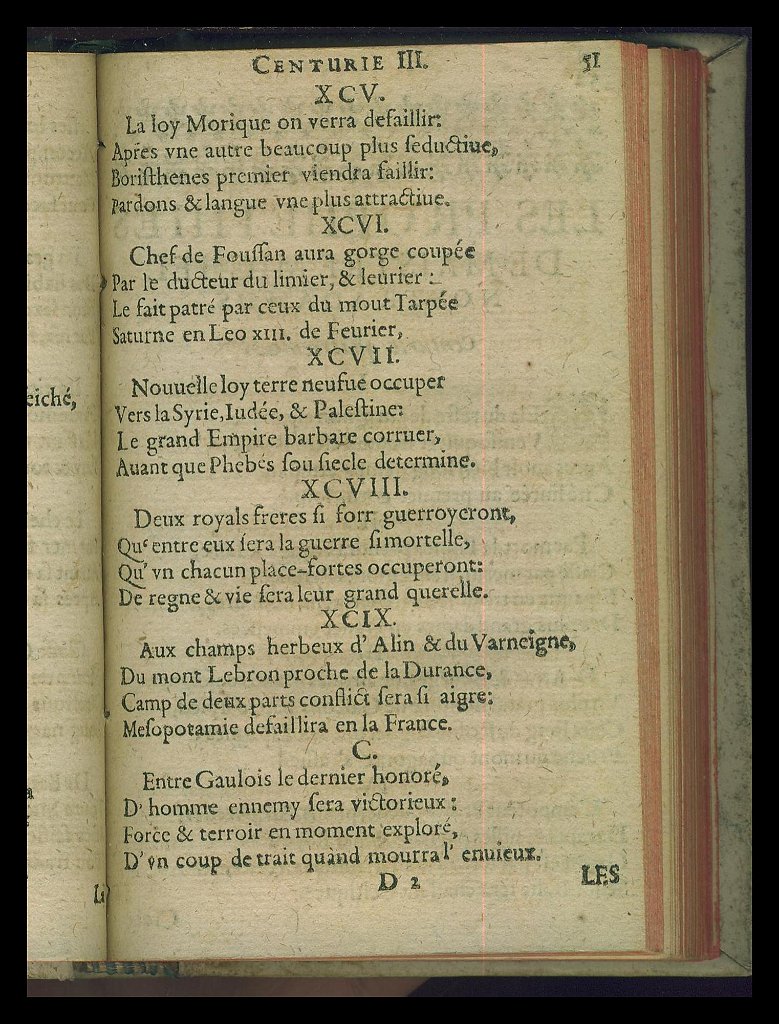 eiché,
L
CENTURIE III. 51
XCV.
La loy Morique on verra defaillir:
Apres vne autre beaucoup plus ſeductiue,
Boriſthenes premier viendra faillir:
Pardons & langue vne plus attractiue.
XCVI.
Chef de Fouſſan aura gorge coupée
Par le ducteur du limier, & leurier :
Le fait patré par ceux du mout Tarpée
Saturne en Leo XIII. de Feurier,
XCVII.
Nouuelle loy terre neufue occuper
Vers la Syrie, Iudée, & Paleſtine:
Le grand Empire barbare corruer,
Auant que Phebés ſou ſiecle determine.
XCVIII.
Deux royals freres ſi forr guerroyeront,
Qu'entre eux ſera la guerre ſi mortelle,
Qu' vn chacun place-fortes occuperont:
De regne & vie ſera leur grand querelle.
XCIX.
Aux champs herbeux d' Alin & du Varneigne,
Du mont Lebron proche de la Durance,
Camp de deux parts conflict ſera ſi aigre:
Meſopotamie defaillira en la France.
C.
Entre Gaulois le dernier honoré,
D' homme ennemy ſera victorieux :
Force & terroir en moment exploré,
D' vn coup de trait quand mourra l' enuieux.
D 2 LES